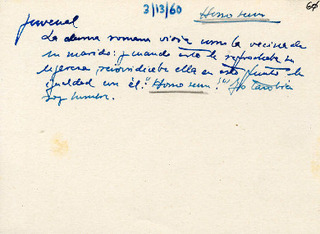 3/13/60 Homo sum 60
Juvenal
La dama romana viosa como la vecina de
su marido: y cuando este le reprochaba su
ligereza reivindicaba ella en este punto la
igualdad con él. "Homo sum!" Yo también
soy hombre.